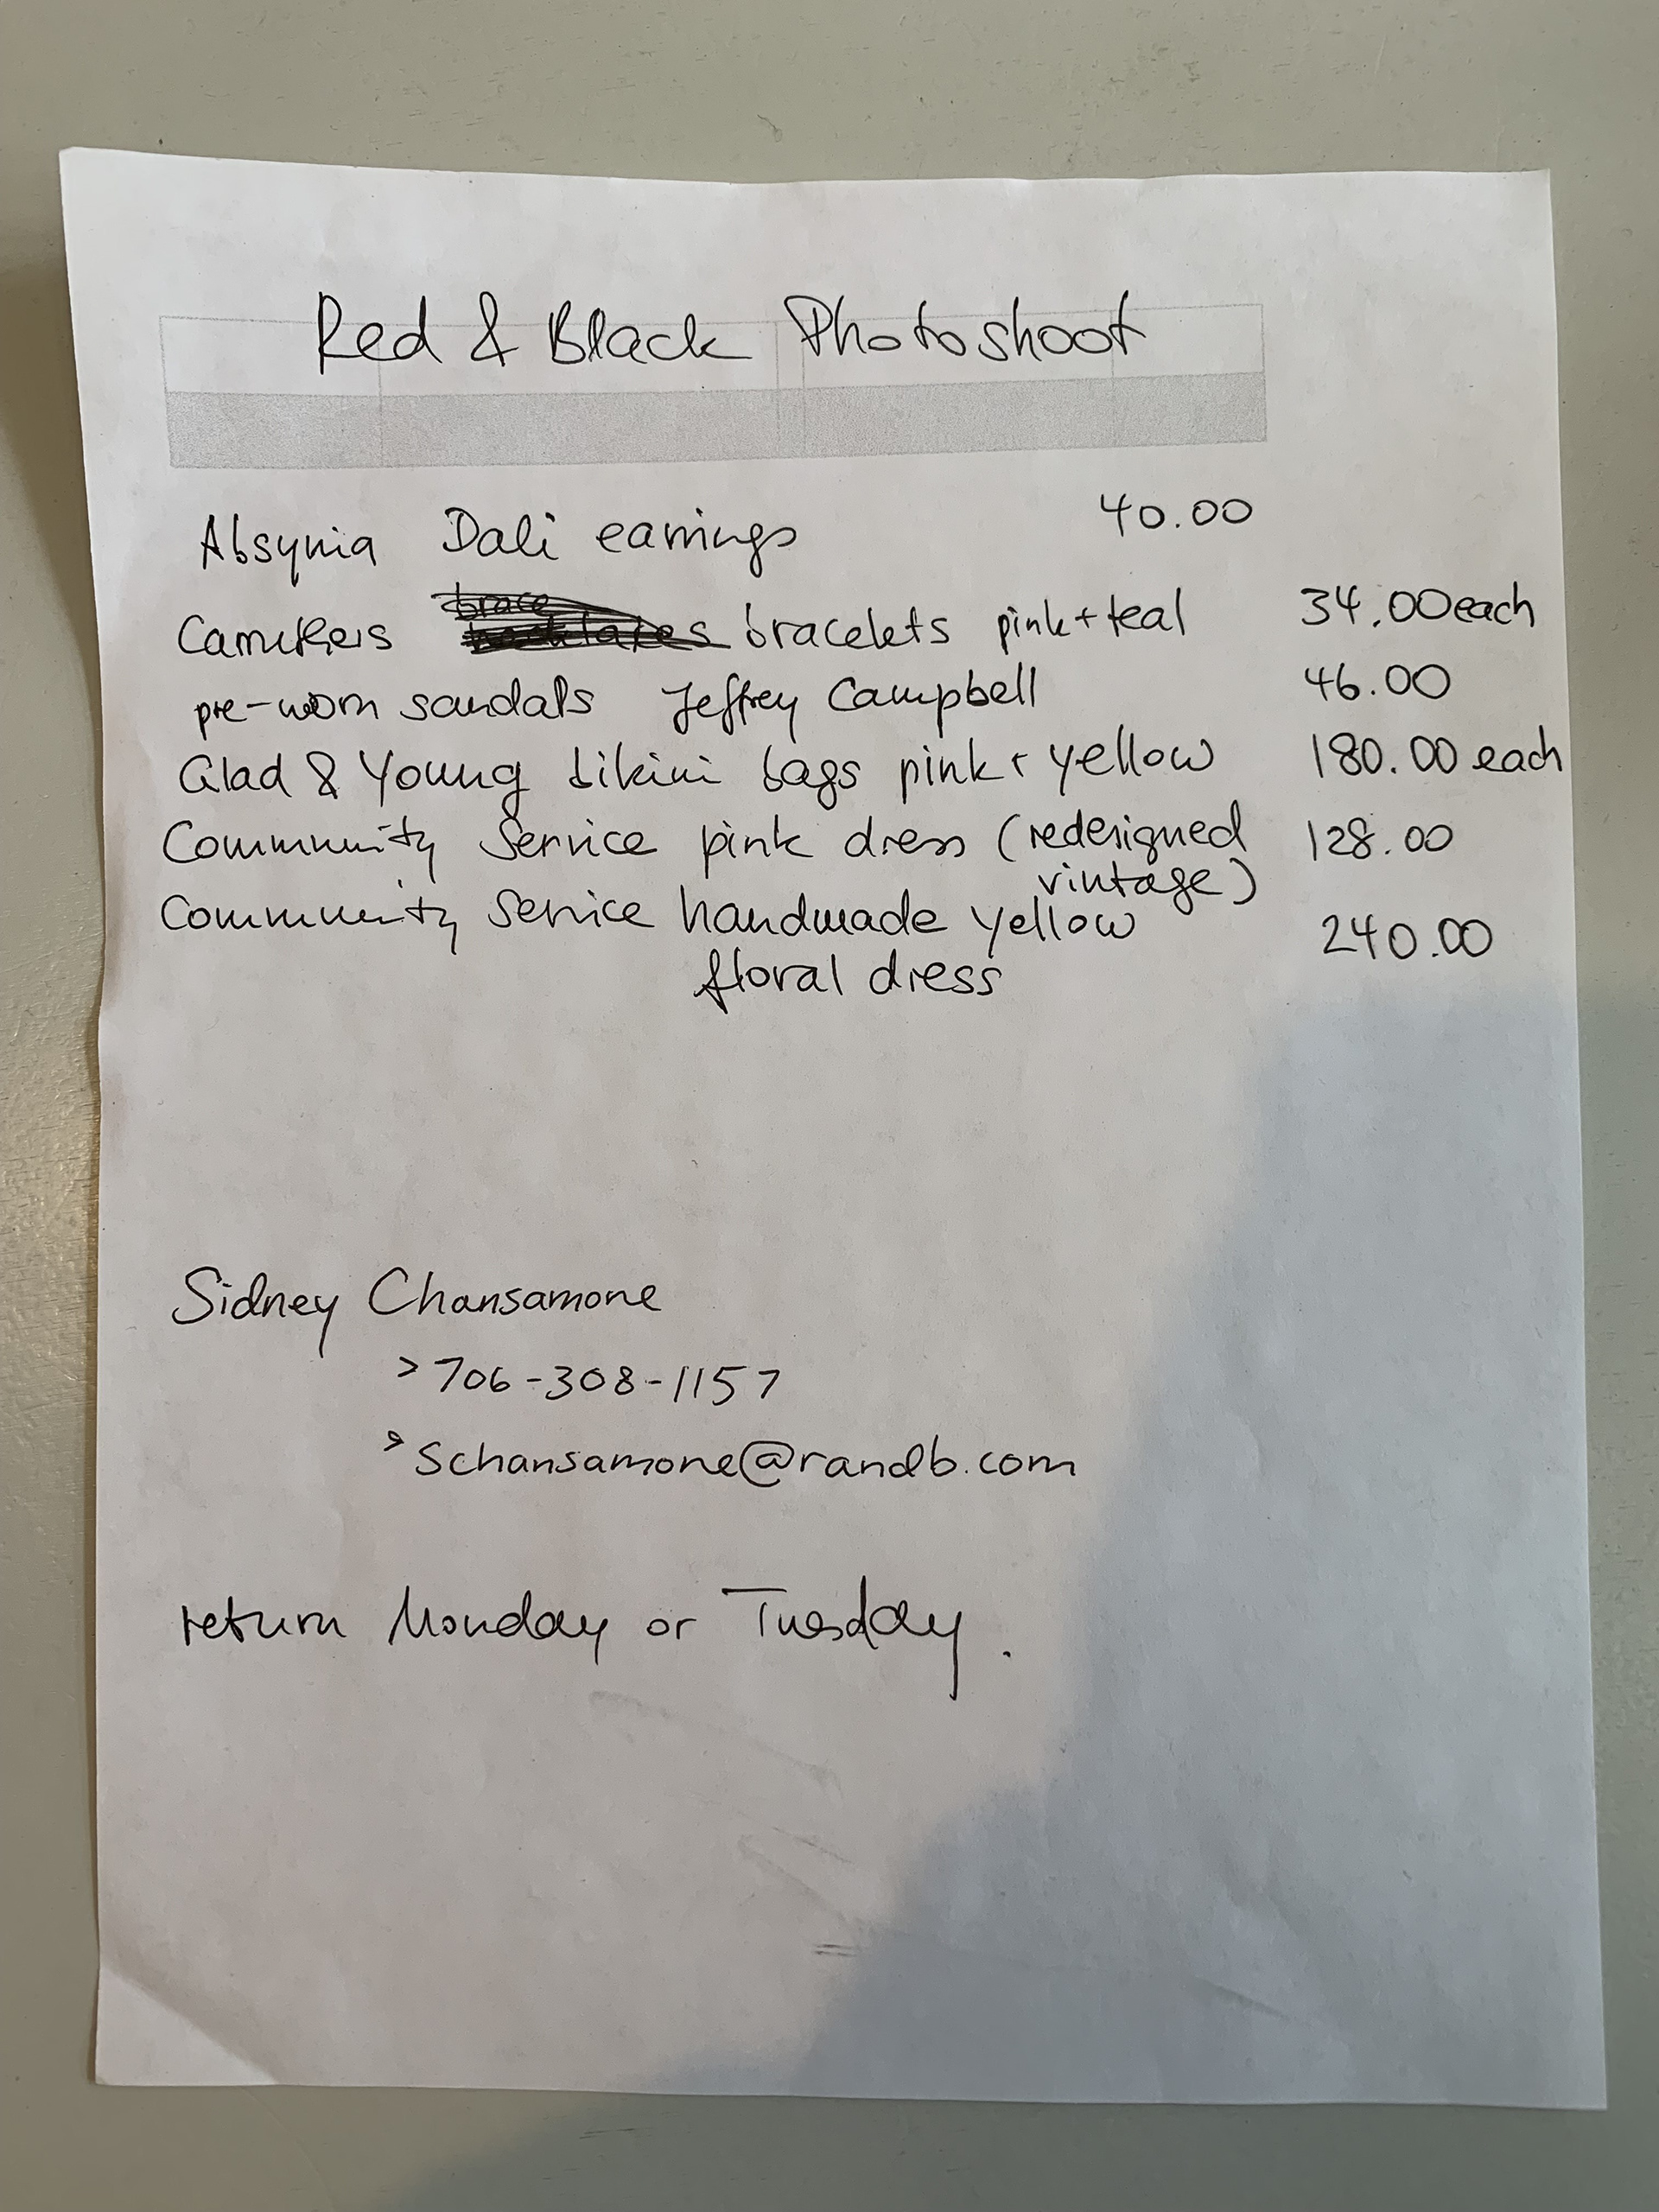 Red & Black Photoshoot
Absynia Dali earrings 40.00
bracelets pink + teal 34.00 each
pre-worn sandals Jeffrey Campbell 46.00
Glad & Young bikini bags pink + yellow 180.00 each
Community Service pink dress (redesigned 128.00
vintage)
Community Service handmade yellow 240.00
floral dress
Sidney Chansamone
> 706-308-1157
> Schansamone@randb.com
return Monday or Tuesday.